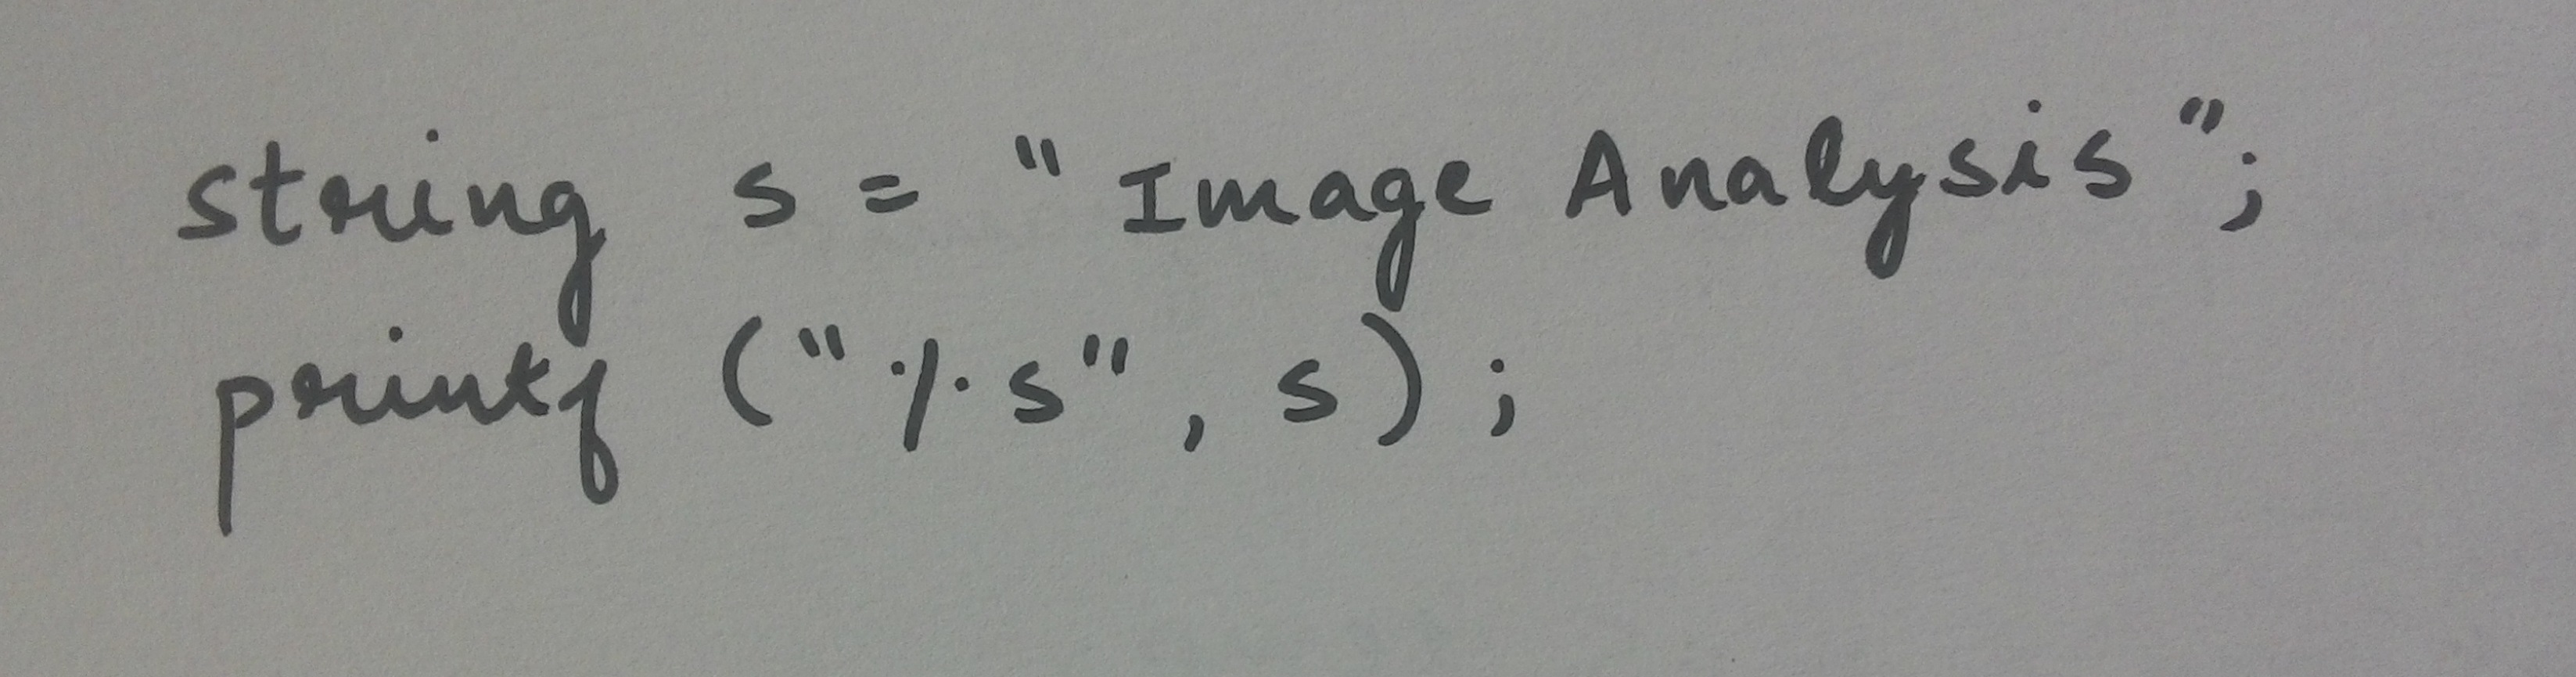 string s = "Image Analysis";
printf ("%s", s);